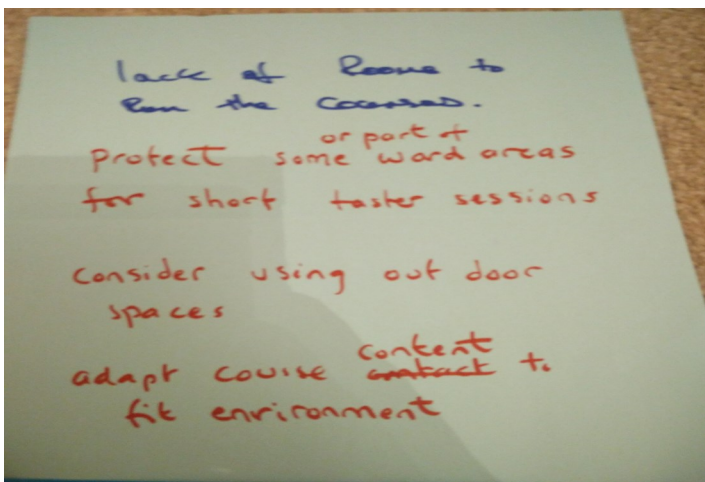 lack of Rooms to
Run the Courses.
or part of
Protect some ward areas
for short taster sessions
consider using out door
spaces
content
adapt course contact to
fit environment